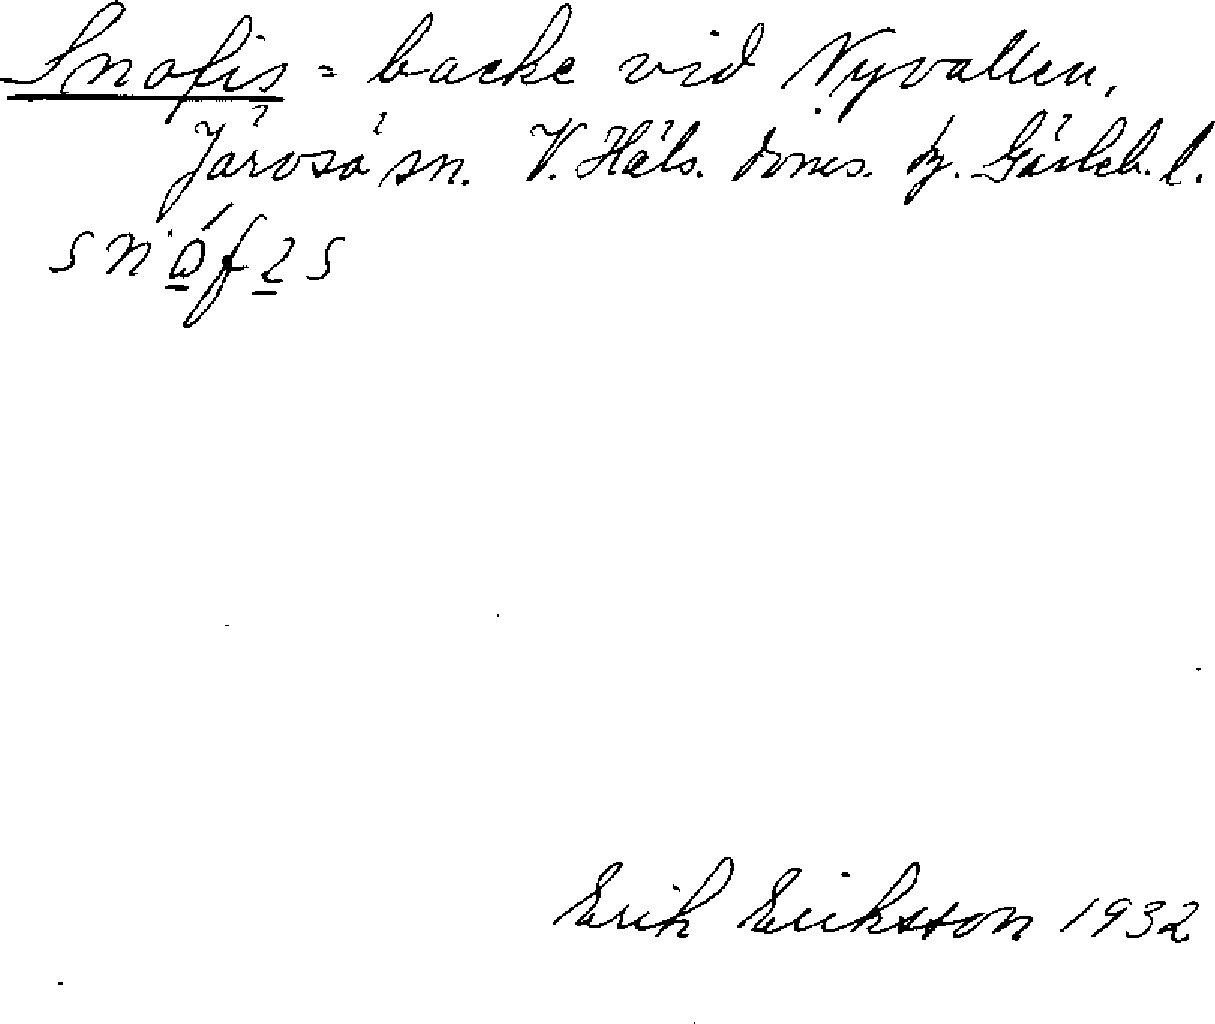 Snofis = backe vid Nyvallen,
Järvsö sn. V. Häls. doms. Gävleb. l.
Erik Eriksson 1932